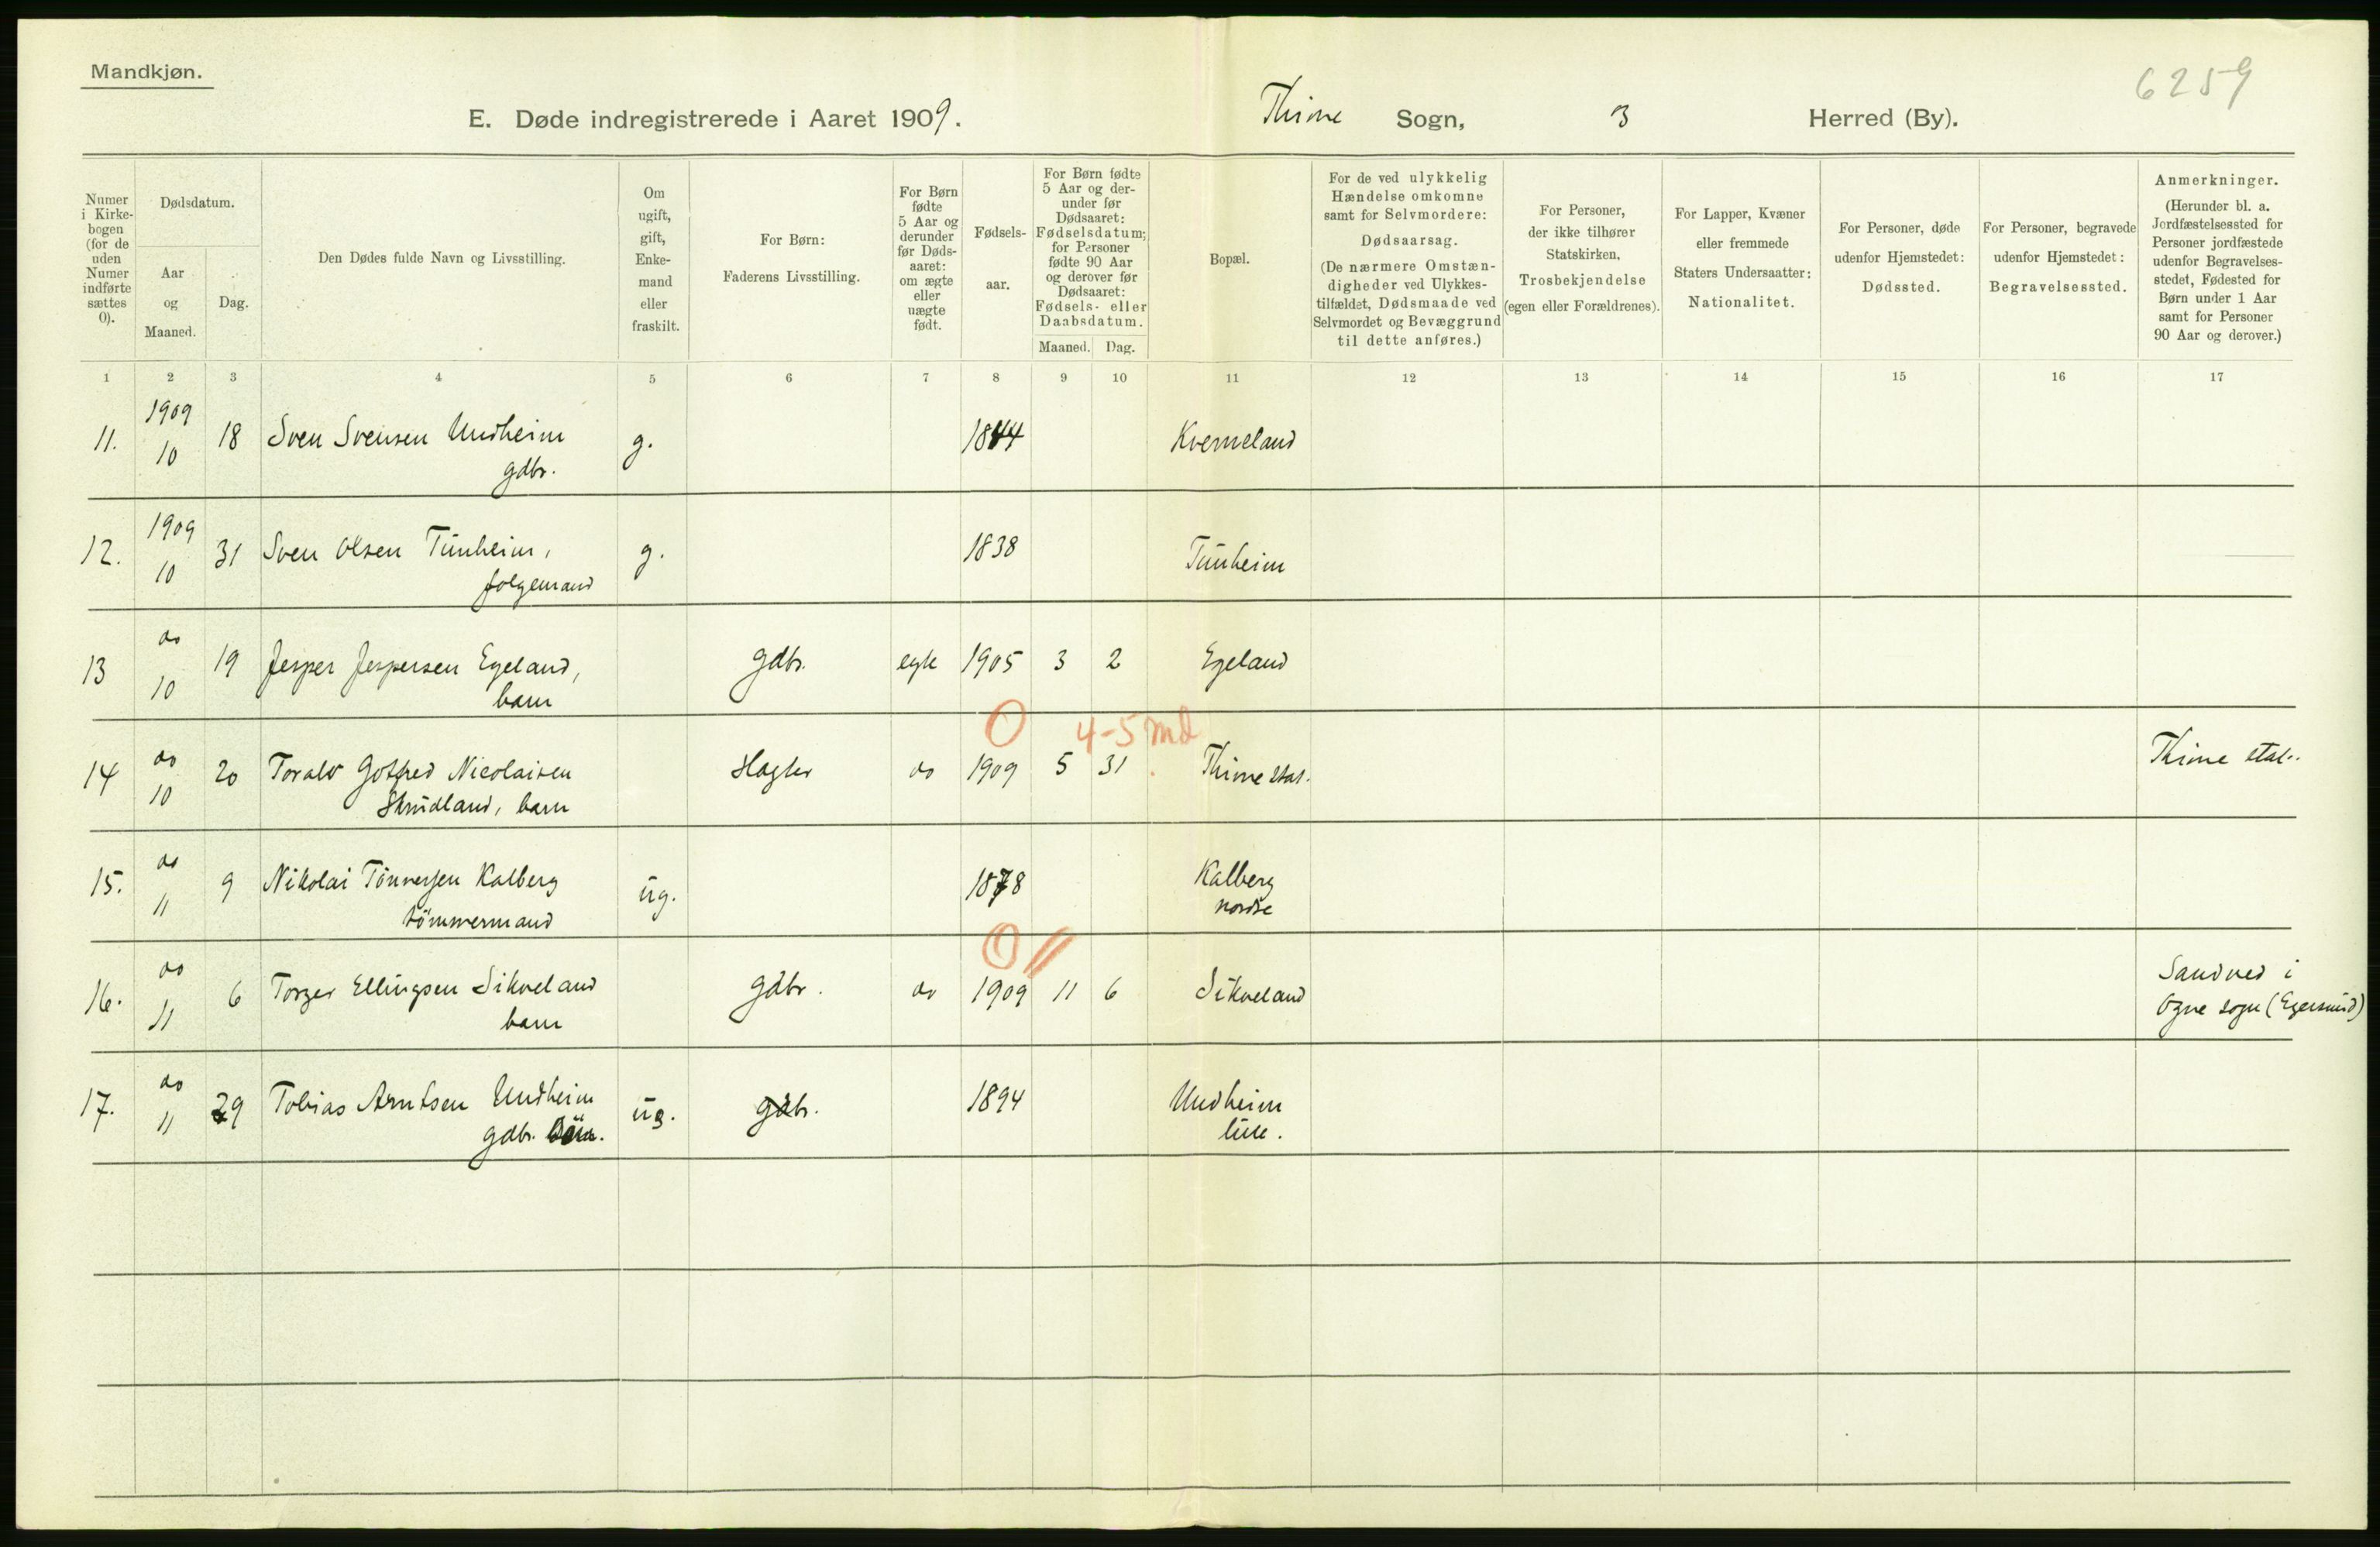 Mandkjøn.
6259
E. Døde indregistrerede i Aaret 1909. Thime Sogn, 3 Herred (By).
Numer i Kirke-bogen (for de uden Numer indførte sættes 0).
Dødsdatum.
Aar og Maaned.
Dag.
Den Dødes fulde Navn og Livsstilling.
Om ugift, gift, Enke-mand eller fraskilt.
For Børn:
Faderens Livsstilling.
For Børn fødte 5 Aar og derunder før Døds-aaret: om ægte eller uægte født.
Fødsels-aar.
For Børn fødte 5 Aar og der-under før Dødsaaret: Fødselsdatum; for Personer fødte 90 Aar og derover før Dødsaaret: Fødsels- eller Daabsdatum.
Maaned. Dag.
Bopæl.
For de ved ulykkelig Hændelse omkomne samt for Selvmordere: Dødsaarsag. (De nærmere Omstæn-digheder ved Ulykkes-tilfældet, Dødsmaade ved Selvmordet og Bevæggrund til dette anføres.)
For Personer, der ikke tilhører Statskirken, Trosbekjendelse (egen eller Forældrenes).
For Lapper, Kvæner eller fremmede Staters Undersaatter: Nationalitet.
For Personer, døde udenfor Hjemstedet: Dødssted.
For Personer, begravede udenfor Hjemstedet: Begravelsessted.
Anmerkninger. (Herunder bl. a. Jordfæstelsessted for Personer jordfæstede udenfor Begravelses-stedet, Fødested for Børn under 1 Aar samt for Personer 90 Aar og derover.)
1 2 3 4 5 6 7 8 9 10 11 12 13 14 15 16 17
11. 1909 10 18 Sven Svensen Undheim g. 1844 Kverneland
gdbr.
12. 1909 10 31 Sven Olsen Tunheim, g. 1838 Tunheim
folgemand
13 do 10 19 Jesper Jespersen Egeland, gdbr. egte 1905 3 2 Egeland
barn
0 4-5 md
14 do 10 20 Toralv Gotfred Nicolaisen do 1909 5 31 Thime stat. Thime stat.
barn
15. do 11 9 Nikolai Tönnesen Kalberg ug. 1878 Kalberg
tömmermand nordre
0 //
16. do 11 6 Torger Ellingsen Sikveland gdbr. do 1909 11 6 Sikveland Sandved i
barn Ogne sogn (Egersund)
17. do 11 29 Tobias Arntsen Undheim ug. gdbr. 1894 Undheim
gdbr. lille.